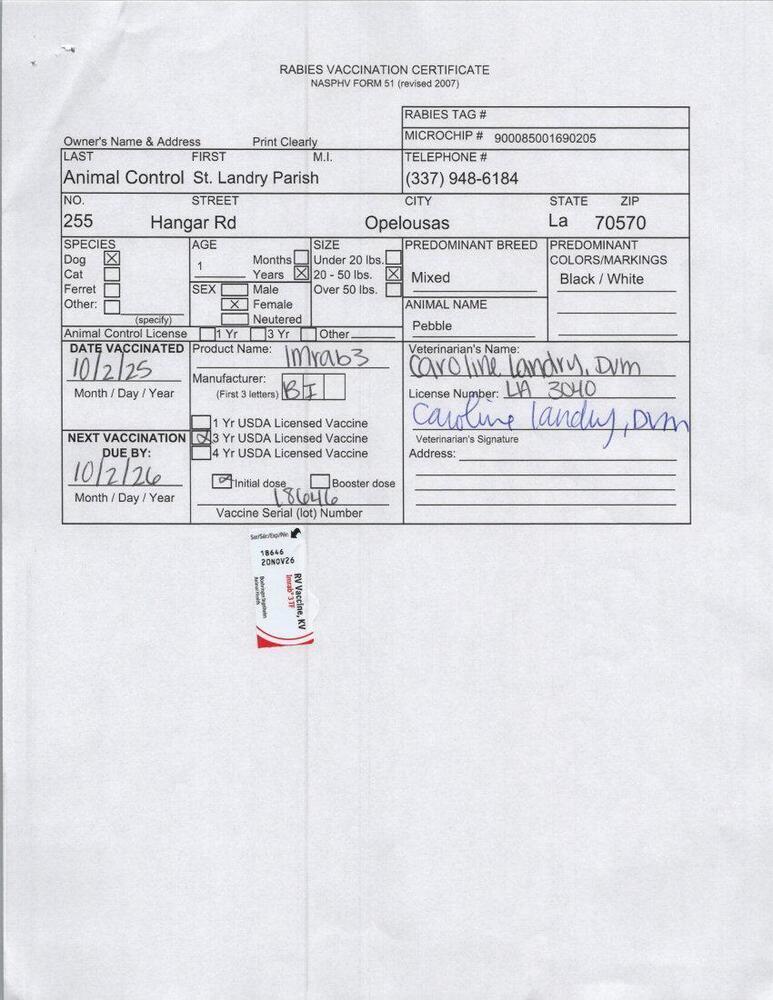 RABIES VACCINATION CERTIFICATE
NASPHV FORM 51 (revised 2007)
RABIES TAG #
MICROCHIP # 900085001690205
Owner's Name & Address Print Clearly
LAST FIRST M.I. TELEPHONE #
Animal Control St. Landry Parish (337) 948-6184
NO. STREET CITY STATE ZIP
255 Hangar Rd Opelousas La 70570
SPECIES
Dog ☒
Cat
Ferret
Other:
(specify)
AGE
1 Months
Years ☒
SEX Male
☒ Female
Neutered
SIZE
Under 20 lbs.
20 - 50 lbs. ☒
Over 50 lbs.
PREDOMINANT BREED
Mixed
PREDOMINANT
COLORS/MARKINGS
Black / White
ANIMAL NAME
Pebble
Animal Control License 1 Yr 3 Yr Other
DATE VACCINATED
10/2/25
Month / Day / Year
NEXT VACCINATION
DUE BY:
10/2/26
Month / Day / Year
Product Name: Imrab3
Manufacturer: BI
(First 3 letters)
1 Yr USDA Licensed Vaccine
☒ 3 Yr USDA Licensed Vaccine
4 Yr USDA Licensed Vaccine
☑ Initial dose Booster dose
18646
Vaccine Serial (lot) Number
Veterinarian's Name:
Caroline Landry, DVM
License Number: LA 3040
Caroline Landry, DVM
Veterinarian's Signature
Address:
Ser/Sér/Exp/Nº:
18646
20NOV26
RV Vaccine, KV
Imrab® 3 TF
Boehringer Ingelheim
Animal Health